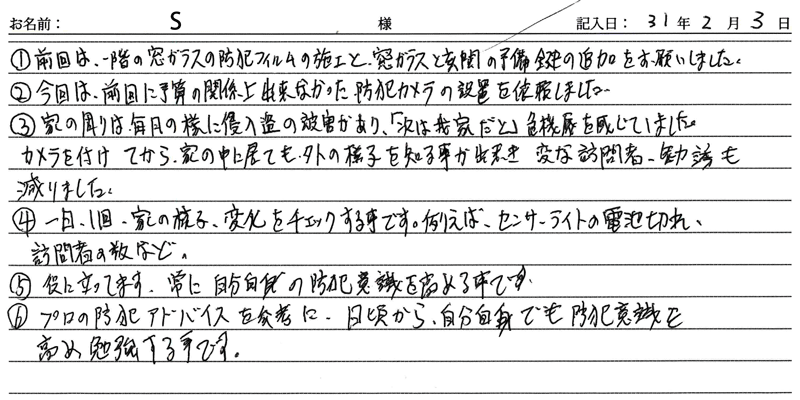 お名前： S 様 記入日： 31 年 2 月 3 日
①前回は、一階の窓ガラスの防犯フィルムの施工と、窓ガラスと玄関の予備錠の追加をお願いしました。
②今回は、前回に予算の関係上出来なかった防犯カメラの設置を依頼しました。
③家の周りは毎月の様に侵入盗の被害があり、「次は我家だと」危機感を感じていました。
カメラを付けてから、家の中に居ても、外の様子を知る事が出来き変な訪問者、勧誘も
減りました。
④一日、1回、家の様子、変化をチェックする事です。例えば、センサーライトの電池切れ、
訪問者の数など。
⑤役に立ってます、常に自分自身の防犯意識を高める事です
⑥プロの防犯アドバイスを参考に、日頃から、自分自身でも防犯意識を
高め勉強する事です。